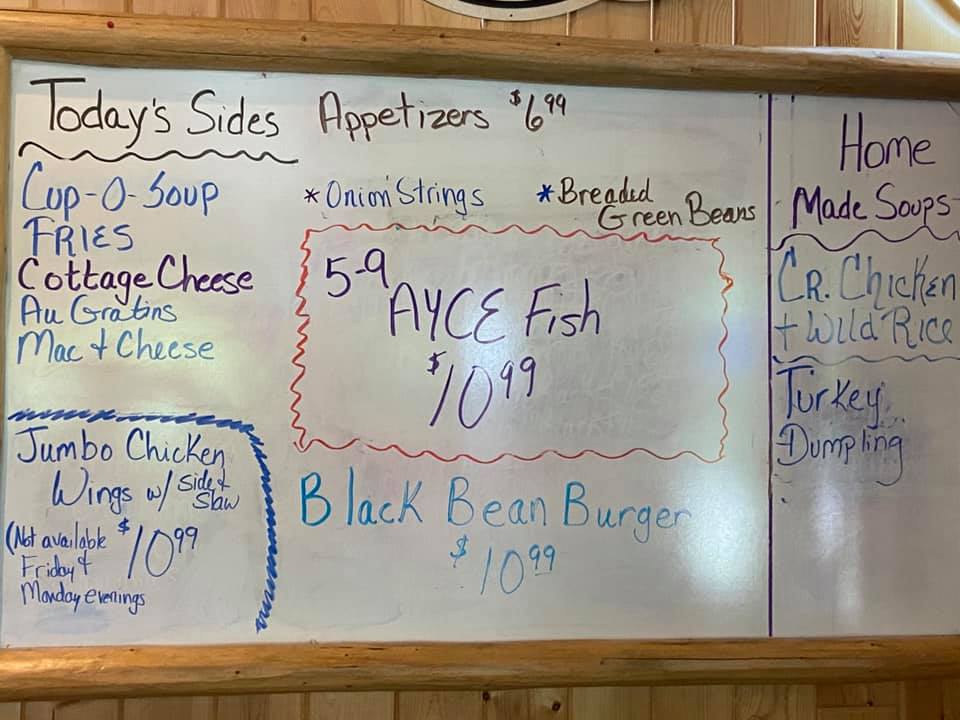 Today's Sides
Cup-O-Soup
FRIES
Cottage Cheese
Au Gratins
Mac + Cheese
Jumbo Chicken
Wings w/ Side +
Slaw
(Not available
Friday +
Monday evenings
$10.99
Appetizers $6.99
* Onion Strings
* Breaded
Green Beans
5-9
AYCE Fish
$10.99
Black Bean Burger
$10.99
Home
Made Soups
CR. Chicken
+ Wild Rice
Turkey
Dumpling